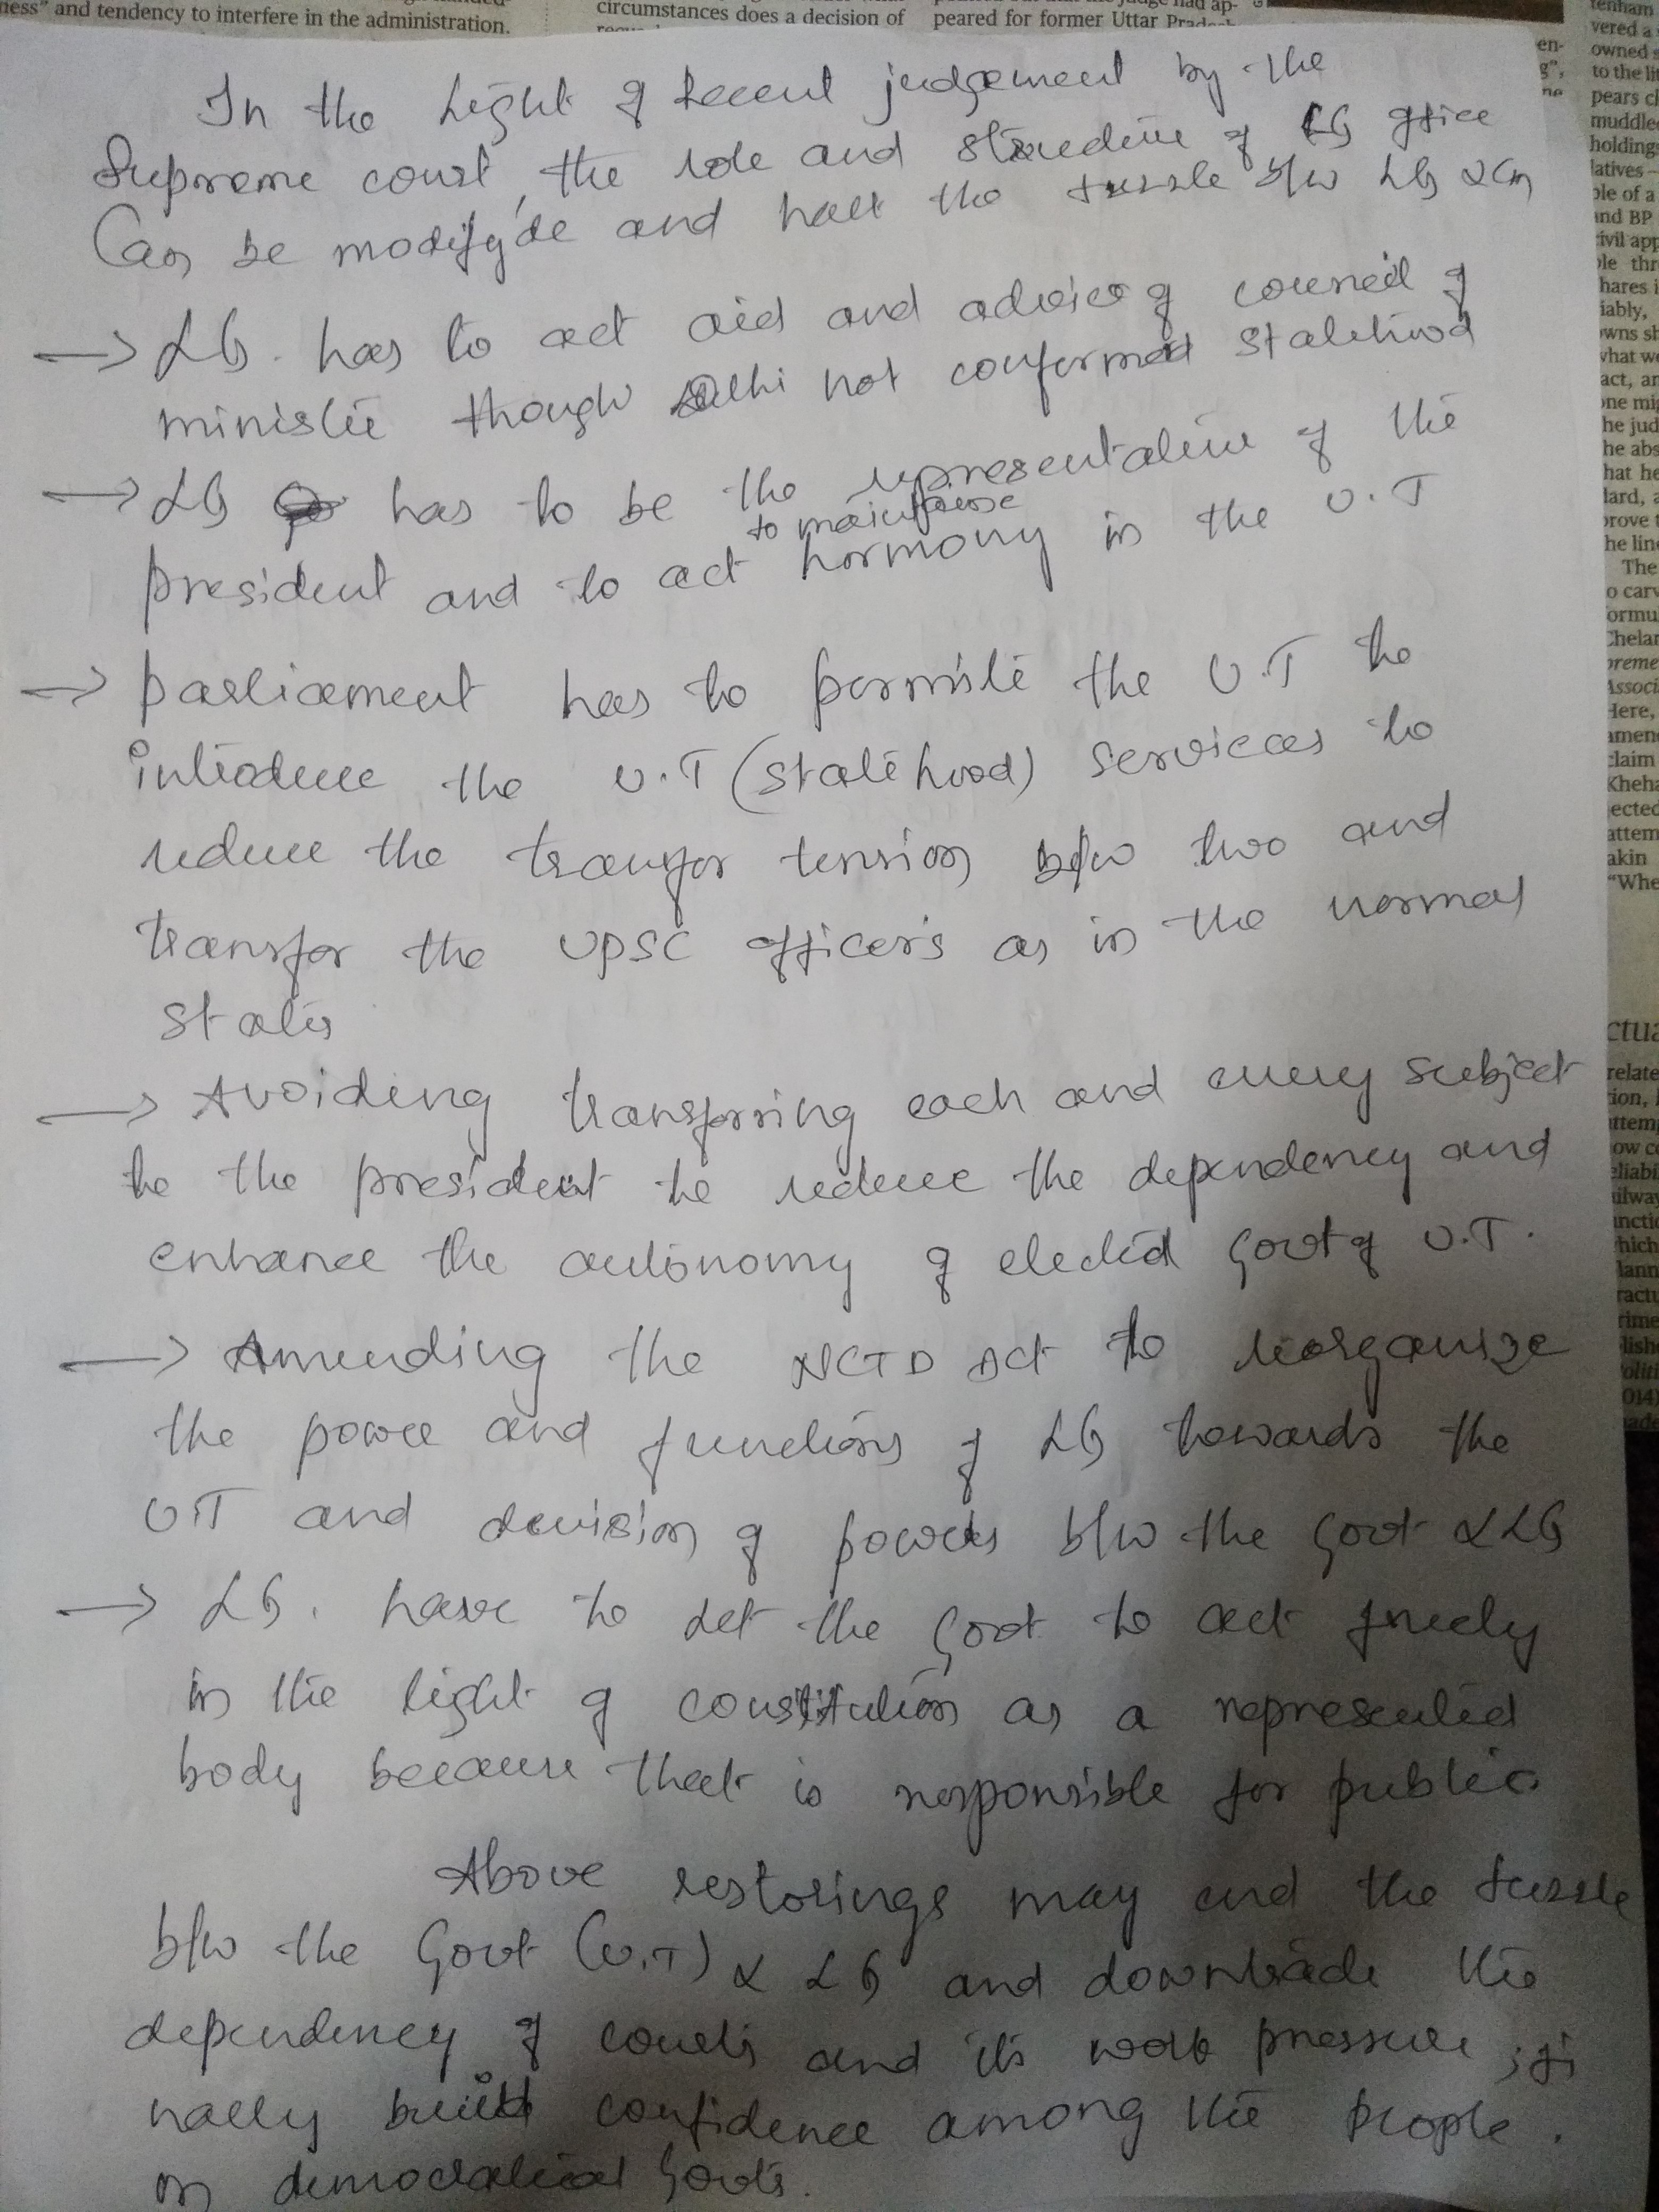 ness" and tendency to interfere in the administration.
circumstances does a decision of
peared for former Uttar Pradesh
In the Light of Recent judgement by the
Supreme court, the role and structure of LG office
Can be modify'de and halt the tussle b/w LG & CM
→ LG. has to act aid and advice of council of
ministie though Delhi not conformed Statehood
→ LG has to be the representative of the
to maintainse
president and to act hormony in the U.T
→ parliament has to permite the U.T to
introduce the U.T (statehood) services to
reduce the transfor tension b/w two and
transfor the UPSC officer's as in the normal
States
→ Avoiding transforring each and every subject
to the president to reduce the dependency and
enhance the autonomy of elected Govt of U.T.
→ Amending the NCTD Act to reorganize
the power and functions of LG towards the
UT and devision of powers b/w the Govt & LG
→ LG. have to let the Govt to act freely
in the light of constitution as a represented
body because that is responsible for public
Above restorings may end the tussle
b/w the Govt (U.T) & LG and down
the
dependency of courts and its work pressure, fi
nally build confidence among the people.
on democratical Govts.
tenham
vered a
owned s
to the li
pears cl
muddle
holdings
latives –
ple of a
and BP
civil app
ple thr
hares i
iably,
owns sh
what we
act, an
one mig
he jud
he abs
hat he
lard, a
prove t
he line
The
o carv
formu
Chelar
preme
Associ
Here,
amen
claim
Kheha
ected
attem
akin
"Whe
ctua
relate